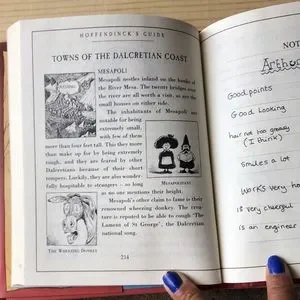 HOFFENDINCK'S GUIDE
TOWNS OF THE DALCRETIAN COAST
MESAPOLI
Mesapoli nestles inland on the banks of
the River Mesa. The twenty bridges over
the river are all worth a visit, as are the
small houses on either side.
The inhabitants of Mesapoli are
notable for being
extremely small,
with few of them
more than four feet tall. This they more
than make up for by being extremely
tough, and they are feared by other
Dalcretians because of their short
tempers. Luckily, they are also wonder-
fully hospitable to strangers – so long
as no one mentions their height.
MESAPOLITANS
Mesapoli's other claim to fame is their
renowned wheezing donkey. The crea-
ture is reputed to be able to cough 'The
Lament of St George', the Dalcretian
national song.
THE WHEEZING DONKEY
214
NOT
Arthor
Good points
Good Looking
hair not too greasy
(I think)
Smiles a lot
Works very ha
is very cheerful
is an engineer